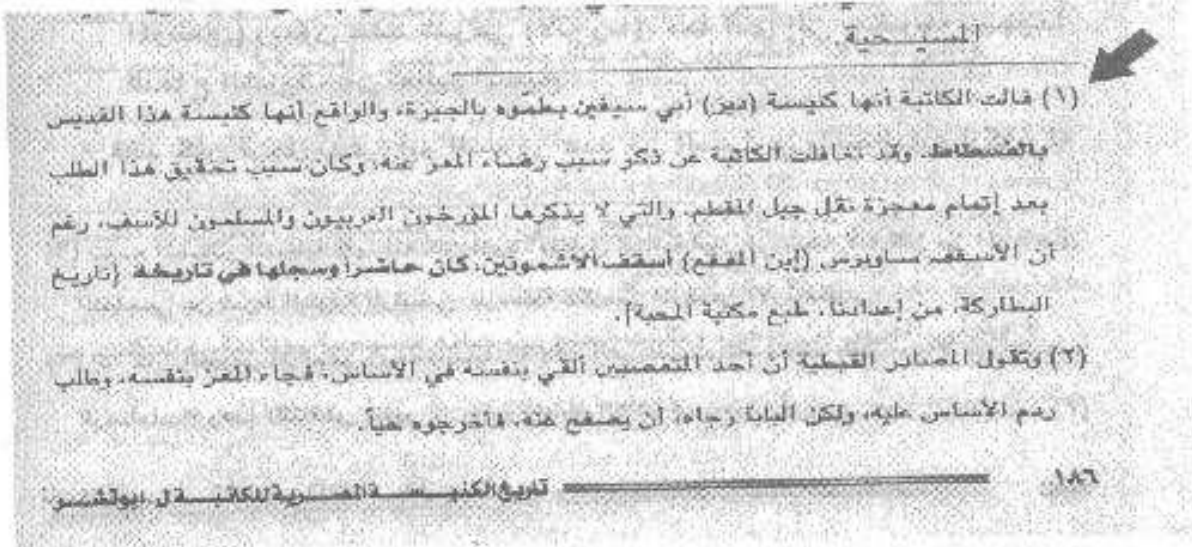 المسيـحية.
(١) قالت الكاتبة أنها كنيسة (دير) أبي سيفين بطمّوه بالجيزة، والواقع أنها كنيسة هذا القديس
بالفسطاط. وقد تغافلت الكاتبة عن ذكر سبب رضاء المعز عنه، وكان سبب تحقيق هذا الطلب
بعد إتمام معجزة نقل جبل المقطم، والتي لا يذكرها المؤرخون الغربيون والمسلمون للأسف، رغم
أن الأسقف ساويرس (إبن المقفع) أسقف الأشمونين، كان حاضرا وسجلها في تاريخه [تاريخ
البطاركة، من إعدادنا، طبع مكتبة المحبة].
(٢) وتقول المصادر القبطية أن أحد المتعصبين ألقي بنفسه في الأساس، فجاء المعز بنفسه، وطلب
ردم الأساس عليه، ولكن البابا رجاه، أن يصفح عنه، فأخرجوه حياً.
١٨٦ تاريخ الكنيسة المصرية للكاتبة ل. ابوتشر